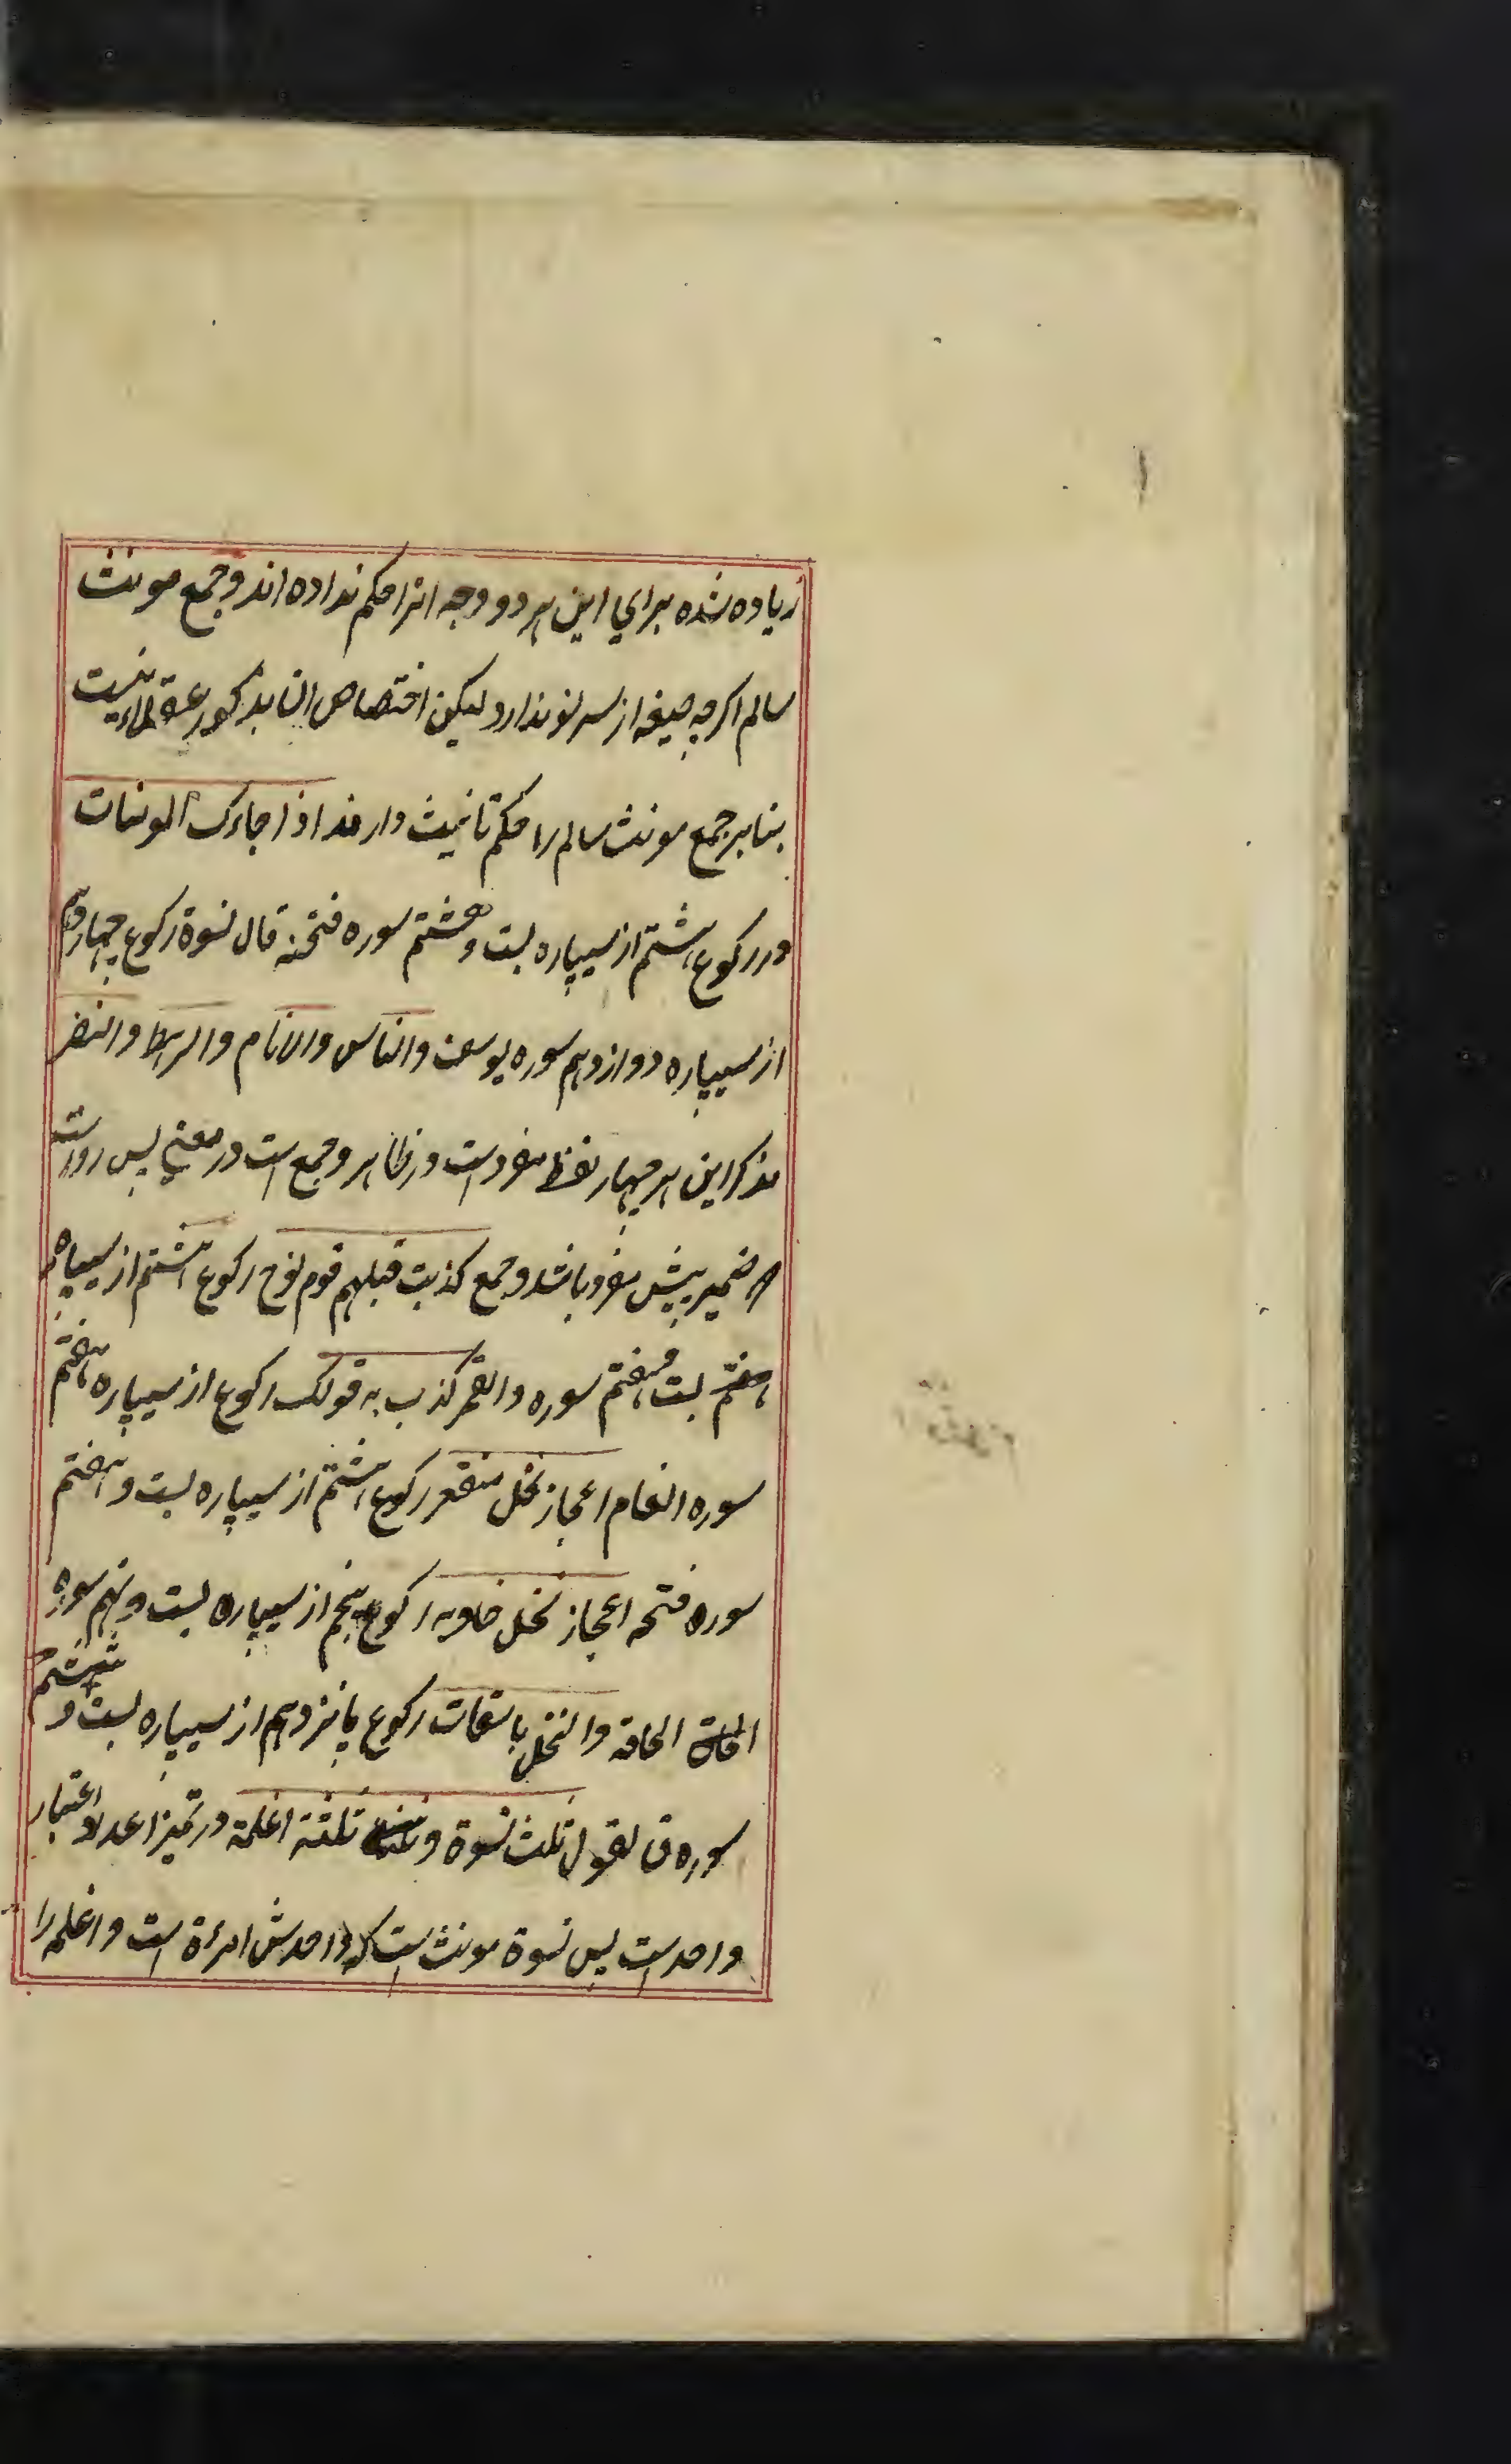 زیاده شده برای این هر دو وجه انرا حکم نداده اند و جمع مونث
سالم اگرچه صیغه از سر نو ندارد لیکن اختصاص انا بذکور عقلاء نیست
بنابر جمع مونث سالم را حکم تانیث دارند اذا جاءک المومنات
در رکوع هشتم از سیپاره بست و هشتم سوره فتحنه قال نسوة رکوع چهاردهم
از سیپاره دوازدهم سوره یوسف والناس والانام والرهط والنفر
مذکر این هر چهار لفظ مفرد است در ظاهر و جمع است در معنی پس رواست
ضمیر پیش مفرد باشد و جمع کذبت قبلهم قوم نوح رکوع هشتم از سیپاره
هفتم بست و هفتم سوره والقمر کذب به قومک رکوع از سیپاره هفتم
سوره انعام اعجاز نخل منقعر رکوع هشتم از سیپاره بست و هفتم
سوره فتحه اعجاز نخل خاویه رکوع پنجم از سیپاره بست و نهم سوره
الحاقة الحاقه والنخل باسقات رکوع پانزدهم از سیپاره بست و ششم
سوره ق تقول ثلث نسوة و ثلثة اغلمة در تمیز اعداد اعتبار
واحد است پس نسوة مونث است که واحدش امرءة است و اغلمه را